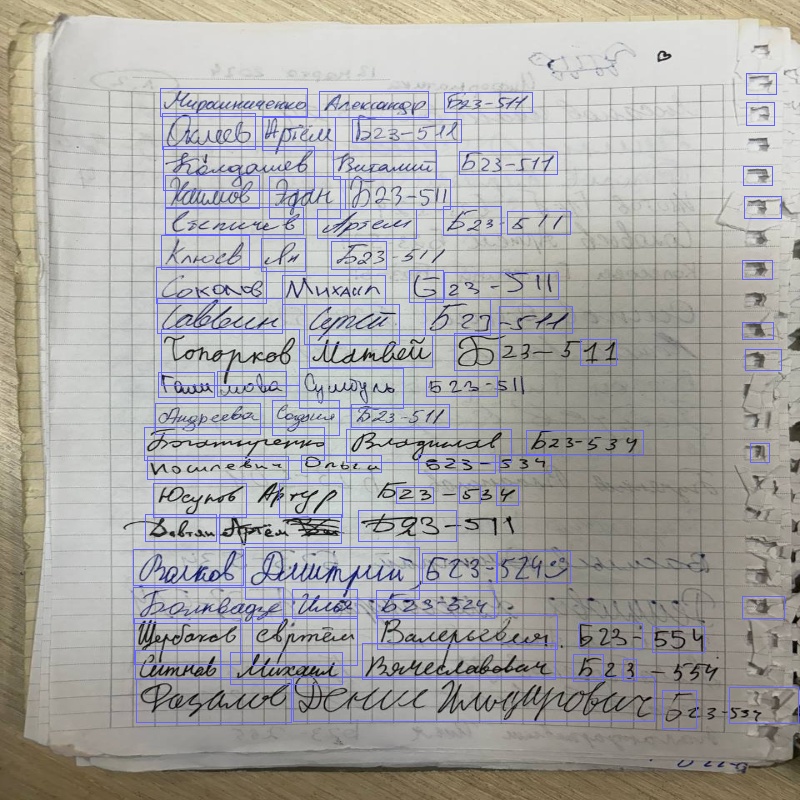 Мирошниченко Александр Б23-511
Артём Б23-511
Колдашев Виталий Б23-511
Эдан Б23-511
Артем Б23-511
Клюев Ян Б23-511
Соколов Михаил Б23-511
Саввин Сергей Б23-511
Топорков Матвей Б23-511
Галимова Сумбуль Б23-511
Андреева София Б23-511
Богатыренко Владислав Б23-534
Иосилевич Ольга Б23-534
Юсупов Артур Б23-534
Довтян Артём Б23-511
Волков Дмитрий, Б23-524
Болквадзе Илья Б23-524
Щербаков Валерьевич. Б23-554
Ситнов Михаил Вячеславович Б23-554
Фазалов Денис Ильдарович Б23-534